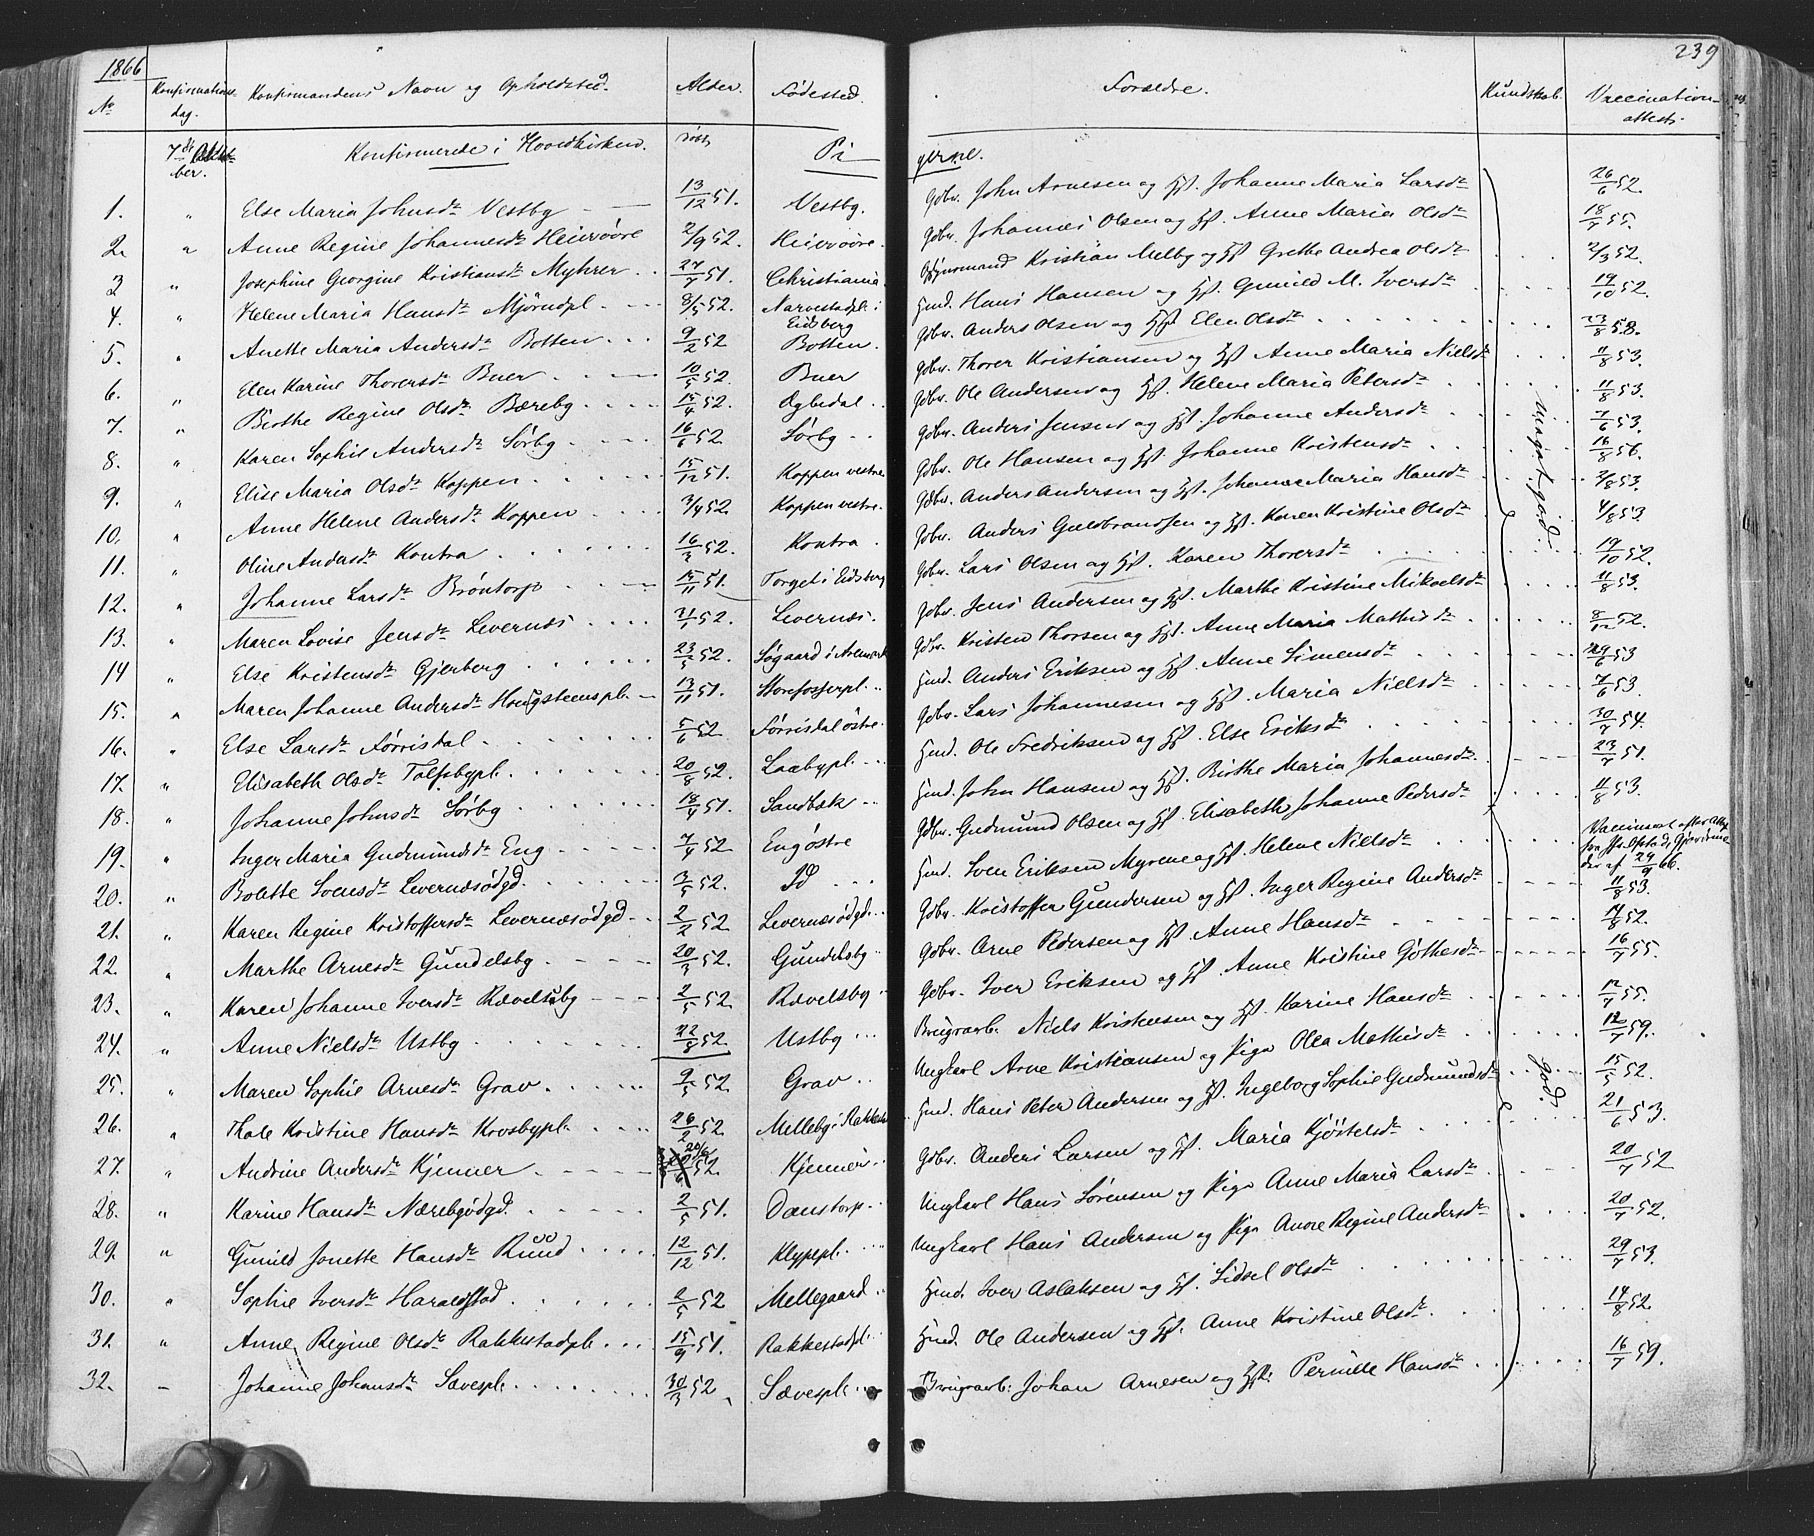 1866
239
No Konfirmations-dag. Konfirmandens Navn og Opholdsted. Alder. Fødested. Forældre. Kundskab. Vaccinations-attest.
7de Oktober. Konfirmerede i Hovedkirken. Pigerne.
1. " Else Maria Johnsdr Vestby 13/12 51. Vestby. Gdbr. John Arnesen og Hst. Johanne Maria Larsdr 26/6 52.
2. " Anne Regine Johannesdr 2/9 52. Gdbr. Johannes Olsen og Hst. Anne Maria Olsdr 18/7 55.
3 " Josephine Georgine Kristiansdr Myhrer 27/7 51. Christiania. Kristian Melby og Hst Grethe Andrea Olsdr 2/3 52.
4. " Helene Maria Hansdr 8/5 52. Narvestadpl. i Eidsberg Hmd. Hans Hansen og Hst. Gunild M. Iversdr 19/10 52.
5. " Anette Maria Andersdr Botten 9/2 52 Botten. Gdbr. Anders Olsen og Hst Elen Olsdr 23/8 58.
6. " Elen Karine Thorersdr Buer 10/5 52. Buer Gdbr. Thorer Kristiansen og Hst Anne Maria Nielsdr 11/8 53.
7. " Birthe Regine Olsdr Bæreby 15/4 52. Gdbr. Ole Andersen og Hst. Helene Maria Petersdr 11/8 53.
8. " Karen Sophie Andersdr Sørby 16/6 52. Sørby Gdbr. Anders Jensen og Hst. Johanne Andersdr 7/6 53.
9. " Elise Maria Olsdr Koppen 15/12 51. Koppen vestre Gdbr. Ole Hansen og Hst. Johanne Kristensdr 16/8 56.
10. " Anne Helene Andersdr Koppen 3/4 52. Koppen vestre. Gdbr. Anders Andersen og Hst. Johanne Maria Hansdr 2/8 53.
11. " Oline Andersdr Kontra 16/3 52. Kontra. Gdbr. Anders Guldbrandsen og Hst. Karen Kristine Olsdr 4/8 53.
12. " Johanne Larsdr Bröntorp 15/11 51. Torget i Eidsberg Gdbr. Lars Olsen og Hst. Karen Thorersdr 19/10 52.
13. " Maren Lovise Jensdr Levernæs 21/1 52. Levernæs. Gdbr. Jens Andersen og Hst. Marthe Kristine Mikaelsdr 11/8 53.
14 " Else Kristensdr Gjerberg 23/5 52. Søgaard i Aremark Gdbr. Kristen Thorsen og Hst. Anne Maria Mathisdr 8/12 52.
15. " Maren Johanne Andersdr Hougsteenspl. 13/11 51. Storefosserpl. Hmd. Anders Eriksen og Hst. Anne Simensdr 29/6 53
16. " Else Larsdr Torrisdal 5/6 52 Torrisdal östre Gdbr. Lars Johannesen og Hst. Maria Nielsdr 7/6 53.
17. " Elisabeth Olsdr Tolfsbypl. 20/8 52. Laabypl. Hmd. Ole Fredriksen og Hst. Else Eriksdr 30/7 54.
18. " Johanne Johnsdr Sørby 18/4 51. Sandbæk Hmd. John Hansen og Hst. Birthe Maria Johannesdr 23/7 51.
19. " Inger Maria Gudmundsdr Eng 7/4 52 Eng östre Gdbr. Gudmund Olsen og Hst. Elisabeth Johanne Pedersdr 11/8 53.
20. " Bolette Svensdr Levernæsødgd. 3/5 52. Id Hmd. Sven Eriksen Myrene og Hst. Helene Nielsdr Vaccineret efter Att. af 29/9 66.
21. " Karen Regine Kristoffersdr Levernæsødgd 2/2 52 Levernæsødgd. Gdbr. Kristoffer Gundersen og Hst. Inger Regine Andersdr 11/8 53.
22. " Marthe Arnesdr Gundelsby 20/3 52. Gundelsby Gdbr. Arne Pedersen og Hst Anne Hansdr 14/8 52.
23. " Karen Johanne Iversdr Rævelsby 2/5 52 Rævelsby Gdbr. Iver Eriksen og Hst. Anne Kristine Göthesdr 16/7 55.
24. " Anne Nielsdr Ustby 22/8 52. Ustby Brugsarb. Niels Kristensen og Hst. Karine Hansdr 12/7 55.
25. " Maren Sophie Arnesdr Grav 9/5 52 Grav Ungkarl Arne Kristiansen og Pige Olea Mathisdr 12/7 59.
26. " Thale Kristine Hansdr Krosbypl. 26/2 52 Melleby i Rakkestad Hmd. Hans Peter Andersen og Hst. Ingeborg Sophie Gudmundsdr 15/5 52.
27. " Andrine Andersdr Kjenner 20/6 52 Kjenner Gdbr. Anders Larsen og Hst. Maria Kjöstelsdr 21/6 53.
28. " Karine Hansdr Nærebyödgd. 2/5 51. Danstorp Ungkarl Hans Sørensen og Pige Anne Maria Larsdr 20/7 52
29. " Gunild Jonette Hansdr Ruud 12/12 51. Klypepl. Ungkarl Hans Andersen og Pige Anne Regine Andersdr 20/7 52.
30. " Sophie Iversdr Haraldstad 2/5 52 Mellegaard Hmd. Iver Aslaksen og Hst. Sidsel Olsdr 29/7 53.
31. " Anne Regine Olsdr Rakkestadpl. 15/9 51. Rakkestadpl. Hmd. Ole Andersen og Hst. Anne Kristine Olsdr. 14/8 52.
32. - Johanne Johansdr Sævespl. 30/3 52 Sævespl. Brugsarb. Johan Arnesen og Hst. Pernille Hansdr 16/7 59.
meget god.
god.